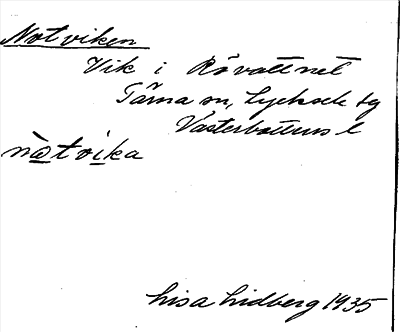 Notviken
Vik i Rövattnet
Tärna sn, Lycksele lg
Västerbottens l
nåtvika
Lisa Lidberg 1935